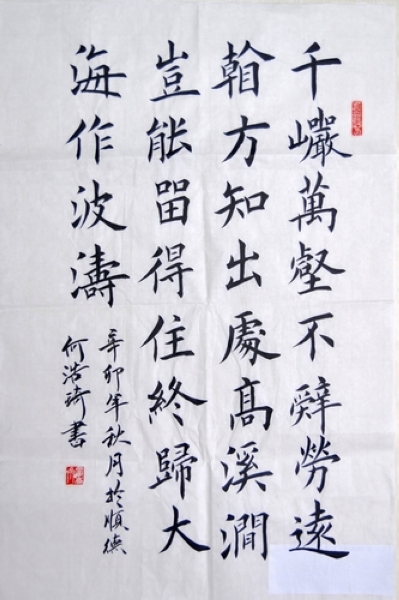 千巖萬壑不辭勞遠
看方知出處高溪澗
豈能留得住終歸大
海作波濤
辛卯年秋月於順德
何浩琦書